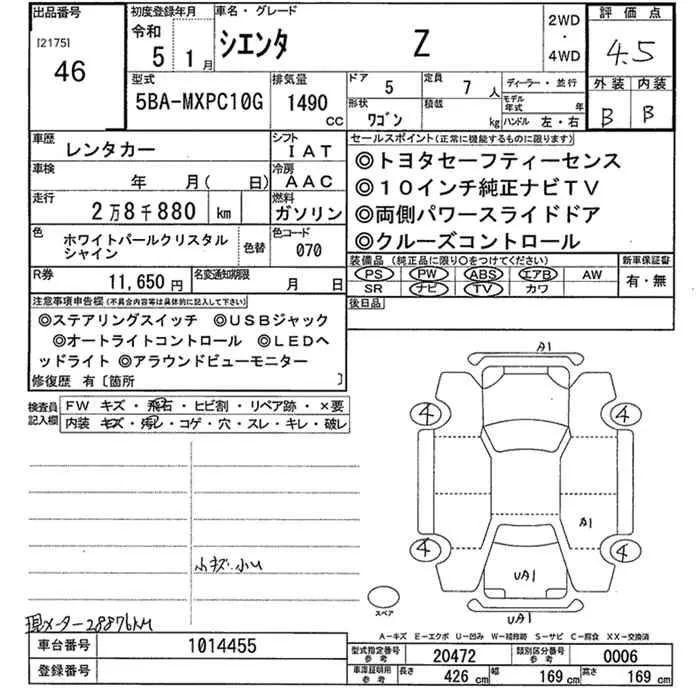 出品番号
[2175]
46
初度登録年月
令和
5年 1月
車名・グレード
シエンタ Z
2WD
・
4WD
評価点
4.5
外装 内装
B B
型式
5BA-MXPC10G
排気量
1490 CC
ドア 5
定員 7人
ディーラー・並行
形状 ワゴン
積載 kg
モデル年式 年
ハンドル 左・右
車歴 レンタカー
シフト IAT
車検 年 月( 日)
冷房 AAC
走行 2万8千880 km
燃料 ガソリン
色 ホワイトパールクリスタルシャイン
色替
色コード 070
R券 11,650円
名変通知期限 月 日
セールスポイント(正常に機能するものに限ります)
◎トヨタセーフティーセンス
◎10インチ純正ナビTV
◎両側パワースライドドア
◎クルーズコントロール
装備品 (純正品に限り○をつけてください)
PS PW ABS エアB AW
SR ナビ TV カワ
新車保証書
有・無
後日品
注意事項申告欄(不具合内容等は具体的に記入して下さい)
◎ステアリングスイッチ ◎USBジャック
◎オートライトコントロール ◎LEDヘ
ッドライト ◎アラウンドビューモニター
修復歴 有〔箇所 〕
検査員記入欄
FW キズ・飛石・ヒビ割・リペア跡・×要
内装・キズ・汚レ・コゲ・穴・スレ・キレ・破レ
小キズ・小U
現メーター28876KM
A1
4 4
A1
4 4
UA1
UA1
スペア
A－キズ E－エクボ U－凹み W－補修跡 S－サビ C－腐食 XX－交換済
車台番号 1014455
登録番号
型式指定番号参考 20472
類別区分番号参考 0006
車庫証明用参考 長さ 426 cm 幅 169 cm 高さ 169 cm